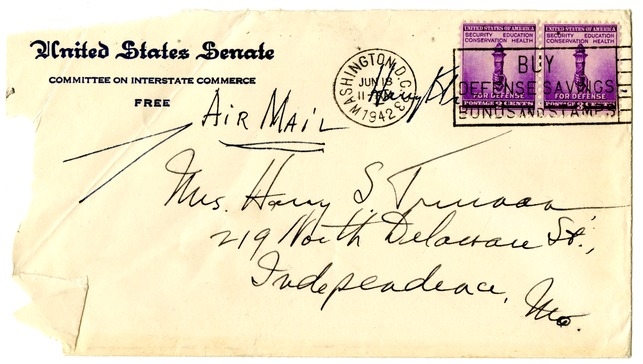 United States Senate
COMMITTEE ON INTERSTATE COMMERCE
FREE
AIR MAIL
WASHINGTON, D.C.
JUN 18
1942
BUY
DEFENSE SAVINGS
BONDS AND STAMPS
UNITED STATES OF AMERICA
SECURITY EDUCATION
CONSERVATION HEALTH
FOR DEFENSE
POSTAGE 3 CENTS
UNITED STATES OF AMERICA
SECURITY EDUCATION
CONSERVATION HEALTH
FOR DEFENSE
POSTAGE 3 CENTS
Mrs. Harry S. Truman
219 North Delaware St.,
Independence, Mo.